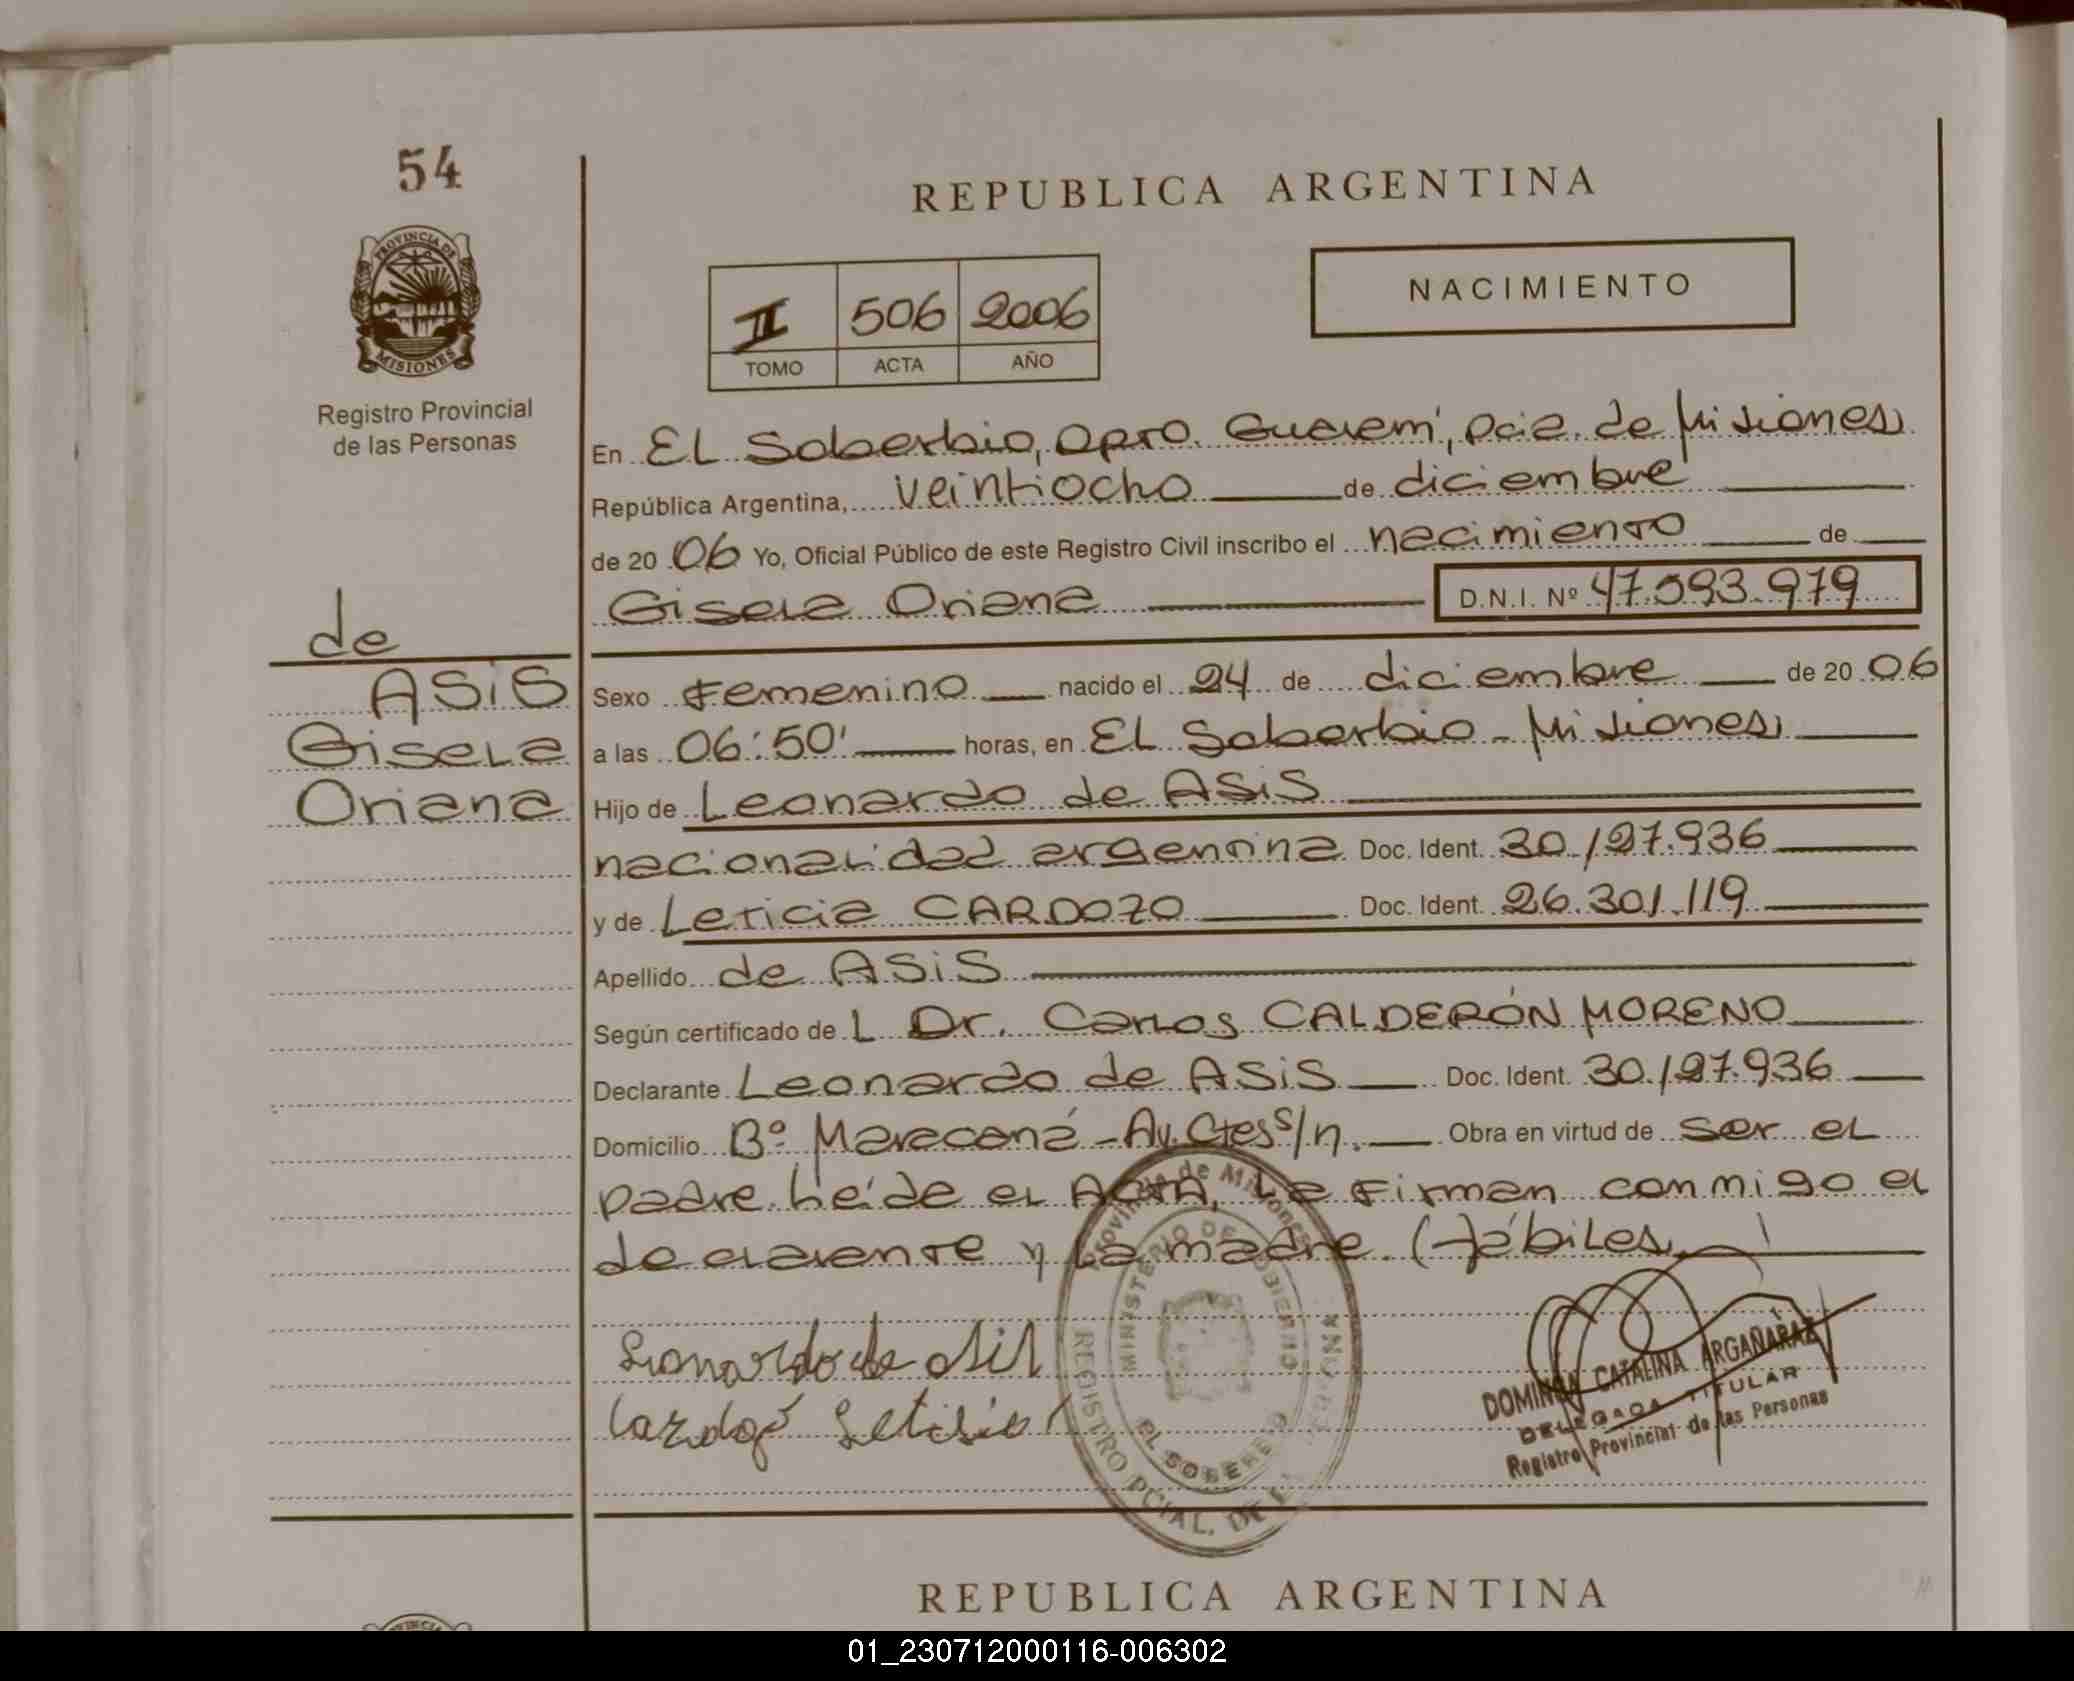 54
PROVINCIA DE
MISIONES
Registro Provincial
de las Personas
REPUBLICA ARGENTINA
II 506 2006
TOMO ACTA AÑO
NACIMIENTO
En El Soberbio, Dpto. Guaraní, Pcia. de Misiones
República Argentina, veintiocho de diciembre
de 20 06 Yo, Oficial Público de este Registro Civil inscribo el nacimiento de
Gisela Oriana D.N.I. Nº 47.593.979
de
ASiS
Gisela
Oriana
Sexo Femenino nacido el 24 de diciembre de 20 06
a las 06:50' horas, en El Soberbio - Misiones
Hijo de Leonardo de ASiS
nacionalidad argentina Doc. Ident. 30.127.936
y de Leticia CARDOZO Doc. Ident. 26.301.119
Apellido de ASiS
Según certificado de L Dr. Carlos CALDERÓN MORENO
Declarante Leonardo de ASiS Doc. Ident. 30.127.936
Domicilio Bº Maracaná - Av. Ctes s/n. Obra en virtud de ser el
padre. Leída el Acta, la firman conmigo el
declarante y la madre. (Hábiles)
Leonardo de Asis
Cardozo Letisia
Provincia de Misiones
MINISTERIO DE GOBIERNO
EL SOBERBIO
REGISTRO PCIAL. DE L
DOMINGA CATALINA ARGAÑARAZ
DELEGADA TITULAR
Registro Provincial de las Personas
REPUBLICA ARGENTINA
01_230712000116-006302